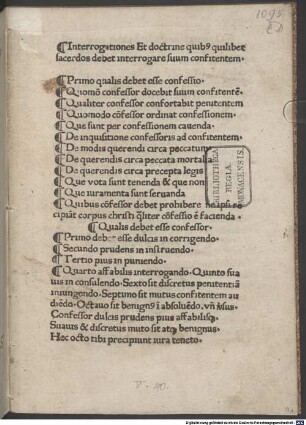 1095
ED
¶ Interrogationes Et doctrine quibꝰ quilibet
sacerdos debet interrogare suum confitentem.
¶ Primo qualis debet esse confessio.
¶ Quomō confessor docebit suum confitentē.
¶ Qualiter confessor confortabit penitentem
¶ Quomodo cōfessor ordinat confessionem.
¶ Que sunt per confessionem cauenda.
¶ De inquisitione confessoris ad confitentem.
¶ De modis querendi circa peccatum
¶ De querendis circa peccata mortalia
¶ De querendis circa precepta legis
¶ Que vota sunt tenenda & que non
¶ Que iuramenta sunt seruanda
¶ Quibus cōfessor debet prohibere ne
cipiāt corpus christi qͣliter cōfessio ē facienda.
¶ Qualis debet esse confessor.
¶ Primo debet esse dulcis in corrigendo.
¶ Secundo prudens in instruendo.
¶ Tertio pius in puniendo.
¶ Quarto affabilis interrogando. Quinto sua
uis in consulendo. Sexto sit discretus penitentiā
iniungendo. Septimo sit mutus confitentem au
diēdo. Octauo sit benignꝰ ī absoluēdo. vn̄
Confessor dulcis prudens pius affabilisqꝫ
Suauis & discretus muto sit atqꝫ benignus.
Hec octo tibi precipiunt iura teneto.
BIBLIOTHECA
REGIA
MONACENSIS.